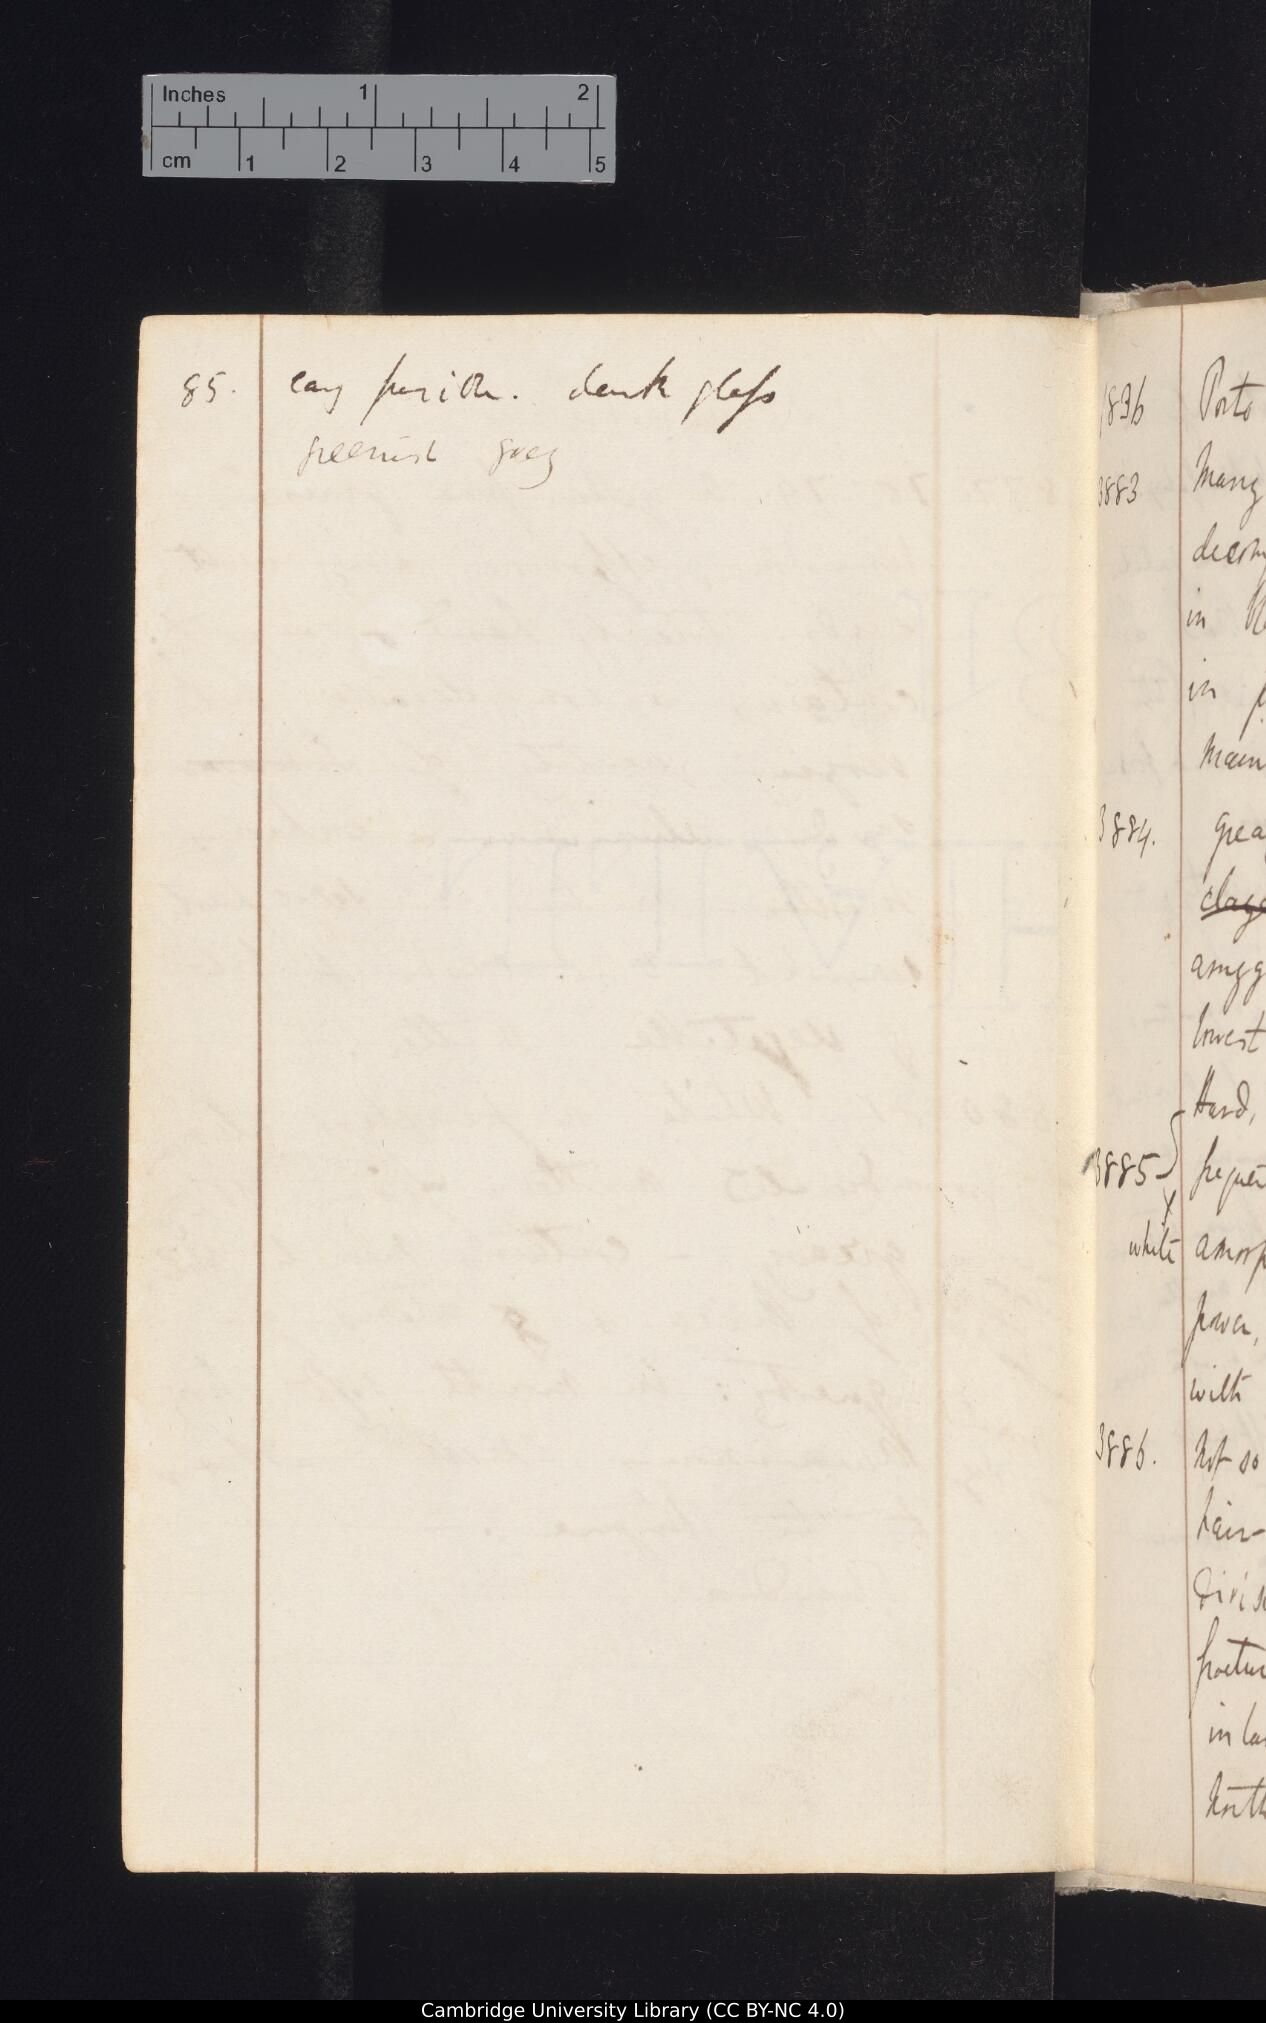 Inches 1 2
cm 1 2 3 4 5
85. easy fusible. dark glass
greenish grey
1836 Porto
3883 Many
decom
in
in
main
3884. grea
clay
amyg
lowest
Hard,
3885 frequen
white amorp
power,
with
3886. Not so
hair-
divis
fractur
in la
North
Cambridge University Library (CC BY-NC 4.0)